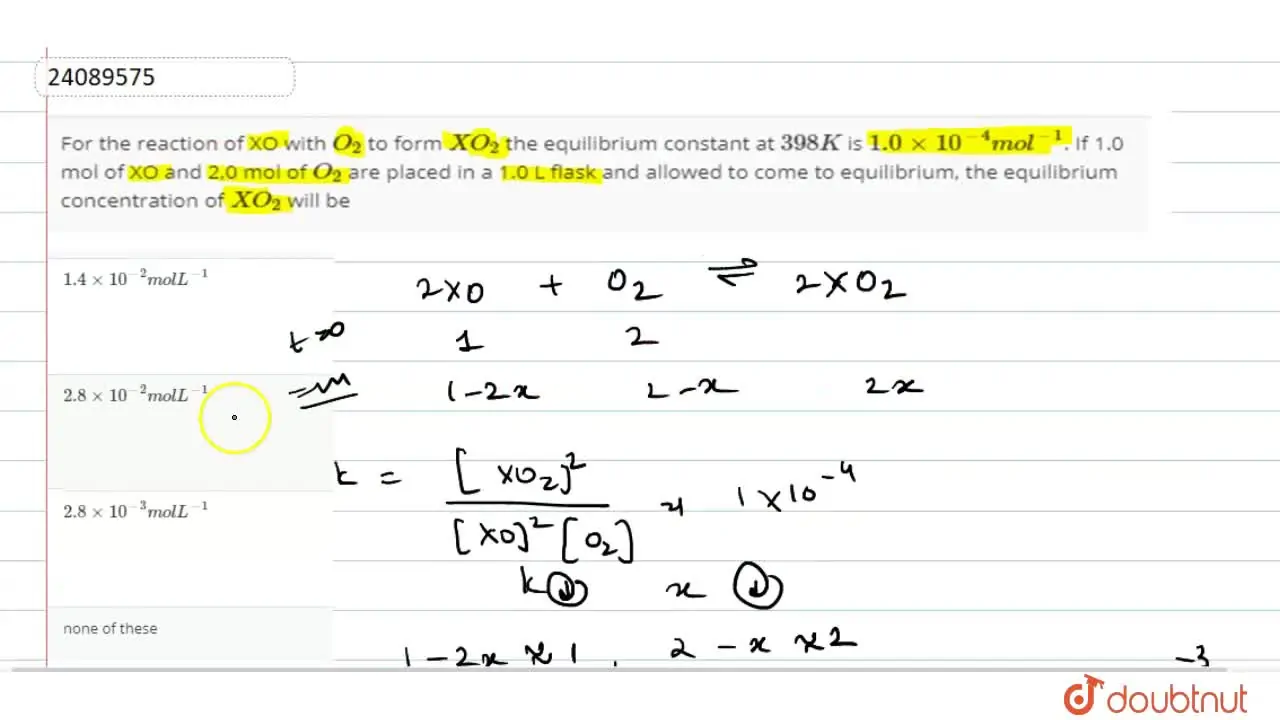 24089575
For the reaction of XO with O₂ to form XO₂ the equilibrium constant at 398K is 1.0 × 10⁻⁴mol⁻¹. If 1.0
mol of XO and 2,0 mol of O₂ are placed in a 1.0 L flask and allowed to come to equilibrium, the equilibrium
concentration of XO₂ will be
1.4 × 10⁻²molL⁻¹
2XO + O₂ ⇌ 2XO₂
t=0 1 2
2.8 × 10⁻²molL⁻¹
1-2x 2-x 2x
k = [XO₂]² / [XO]² [O₂] = 1×10⁻⁴
2.8 × 10⁻³molL⁻¹
k↓ x ↓
none of these
1-2x ≈ 1, 2-x ≈ 2
-3
doubtnut